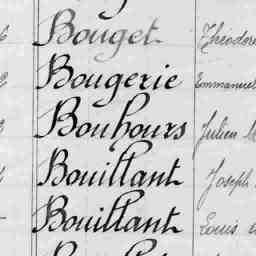 Bouget Théodore
Bougerie Emmanuel
Bouhours Julien
Bouillant Joseph
Bouillant Louis